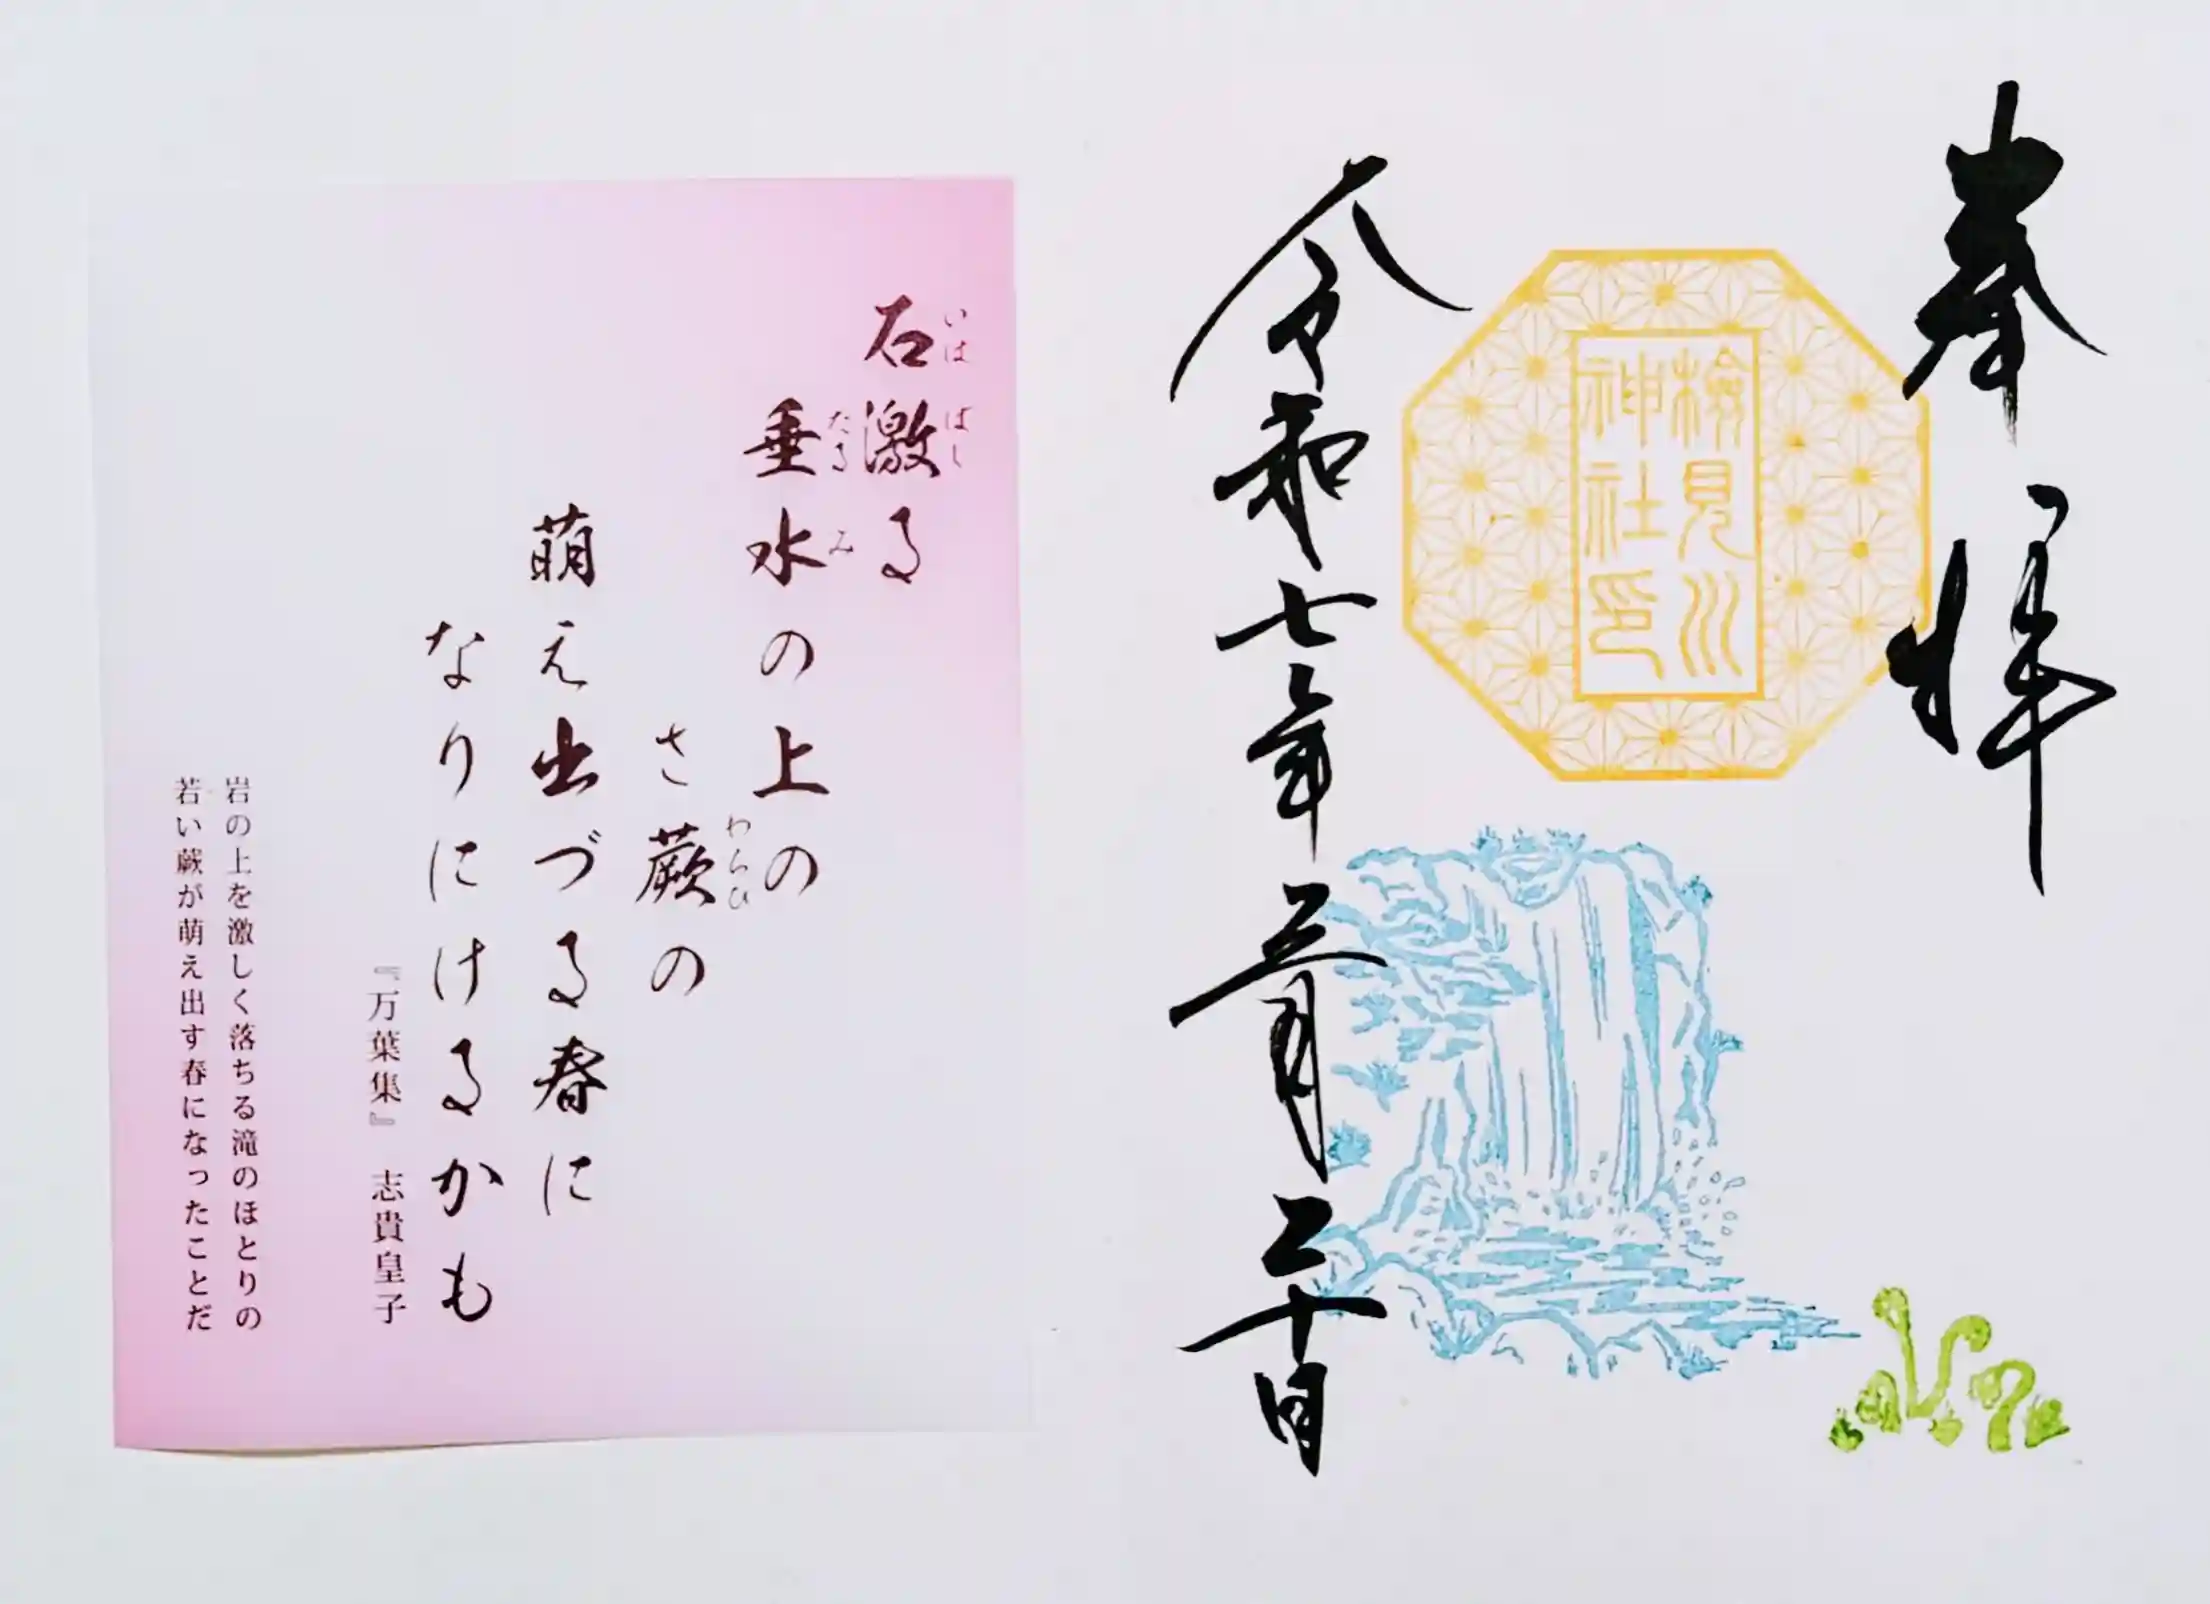 奉拝
検見川
神社印
令和七年三月二十日
石激る
いは ばし
垂水の上の
たる み
さ蕨の
わらひ
萌え出づる春に
なりにけるかも
『万葉集』 志貴皇子
岩の上を激しく落ちる滝のほとりの
若い蕨が萌え出す春になったことだ